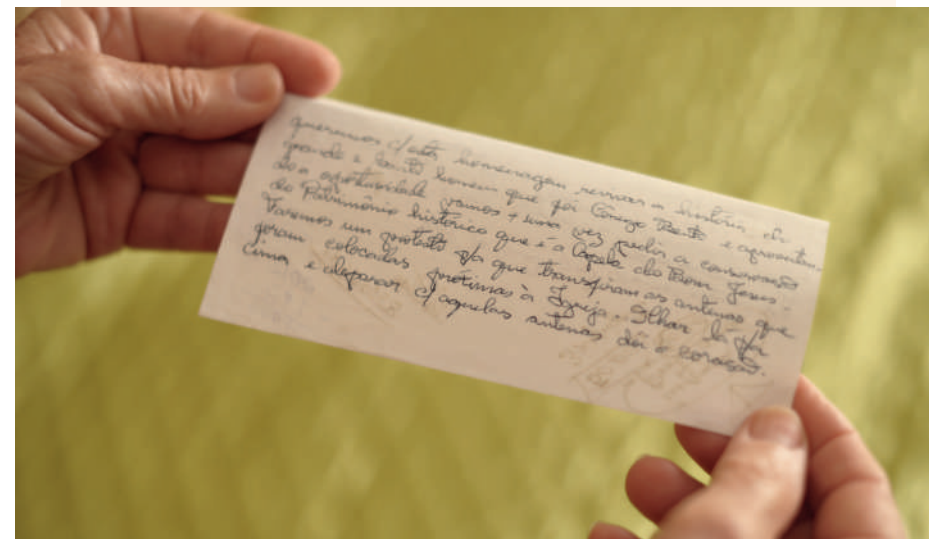 queremos c/ esta homenagem reviver a história do
grande e homem que foi Cônego Bento e aproveitan-
do a oportunidade vamos + uma vez pedir a conservação
do Patrimônio histórico que é a Capela do Bom Jesus.
Faremos um protesto p/a que transfiram as antenas que
foram colocadas próximas à Igreja. Olhar lá p/
cima e deparar c/ aquelas antenas dói o coração.